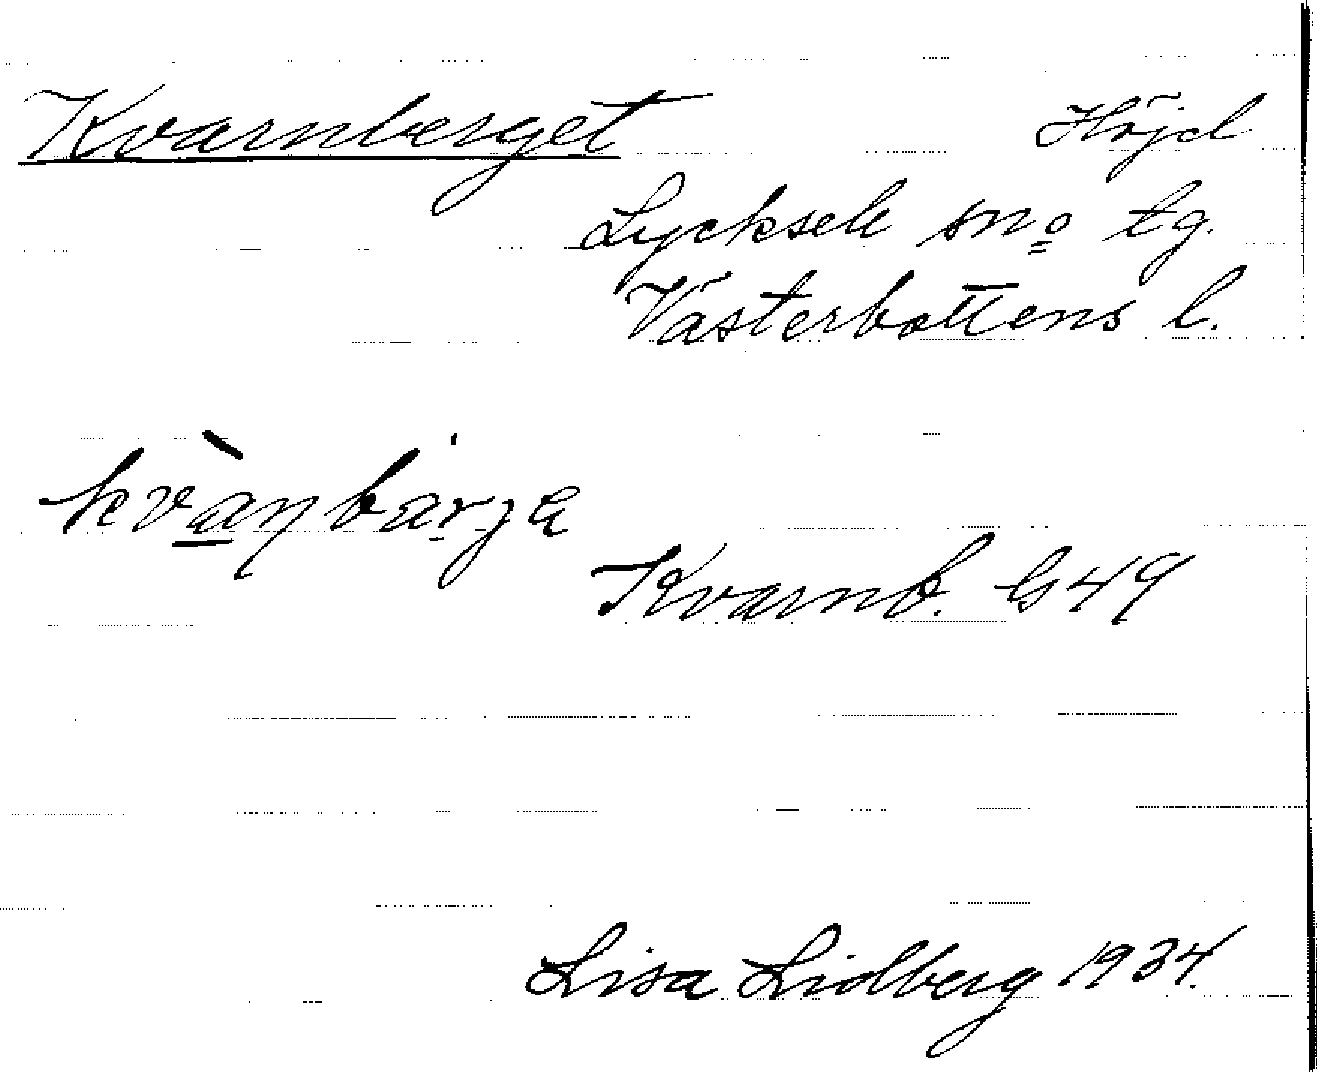 Kvarnberget Höjd
Lycksele sn o tg.
Västerbottens l.
kvàṇbärjα
Kvarnb. G49
Lisa Lidberg 1934.